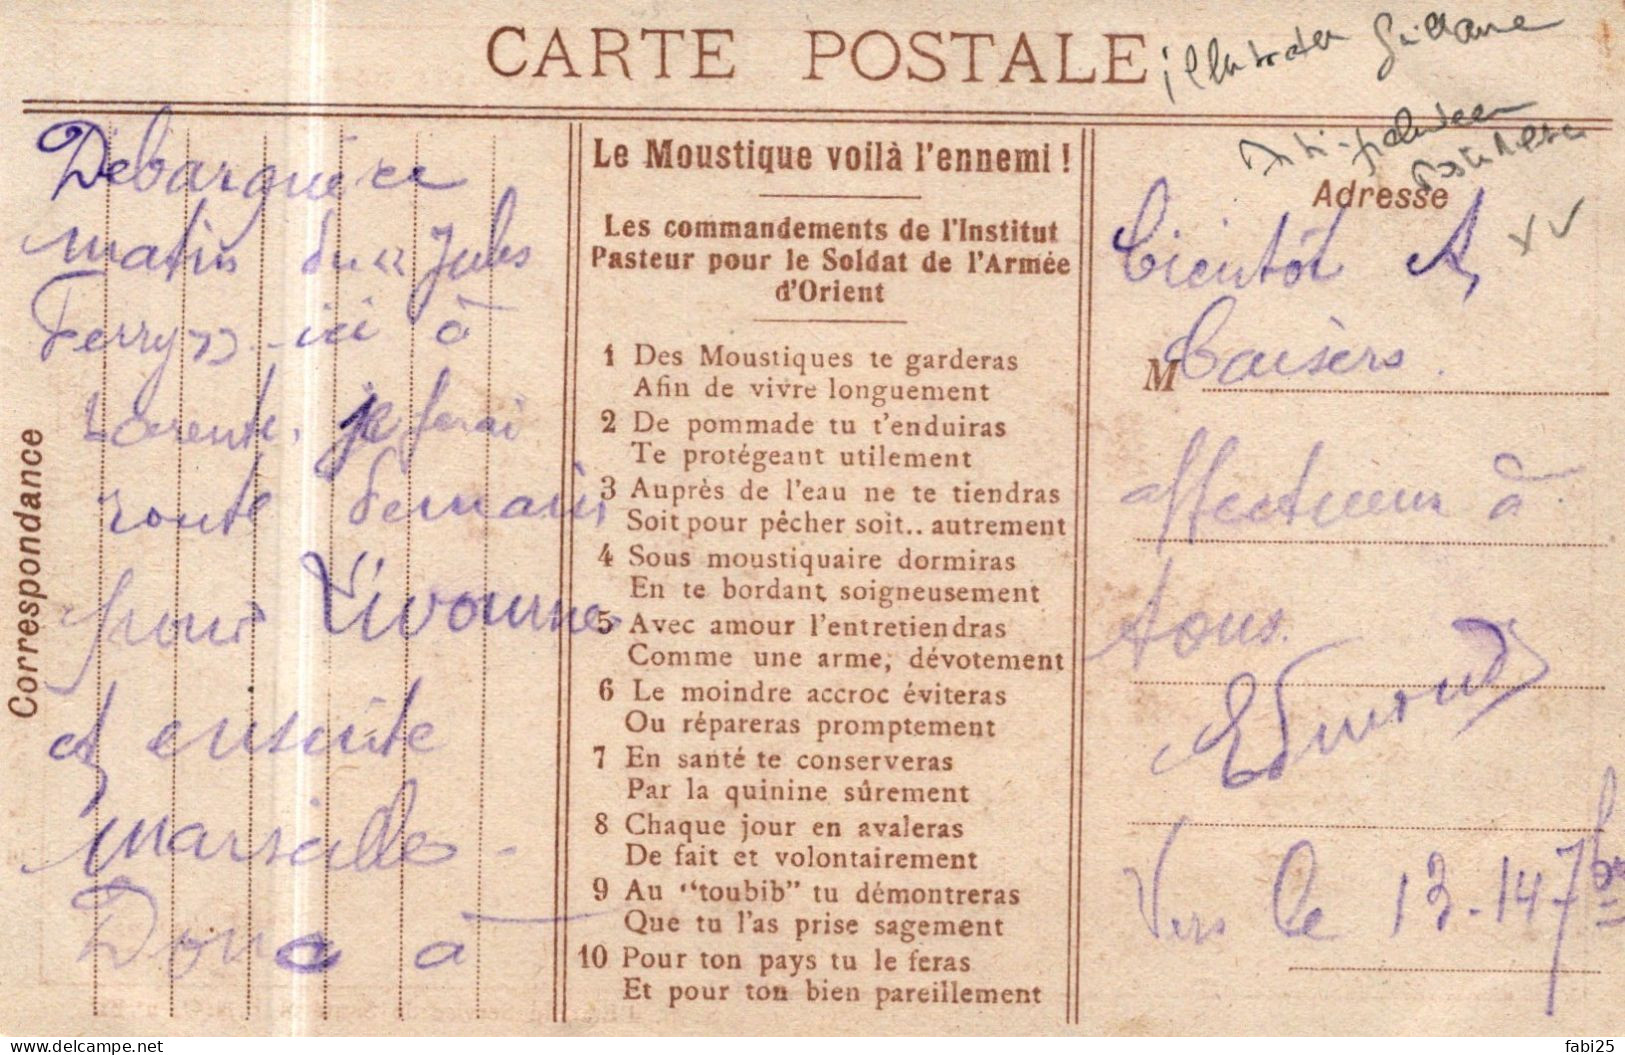 CARTE POSTALE
Debarqué ce
matin du « Jules
Ferry » ici à
Tarente, je ferai
route demain
pour Livourne
et ensuite
Marseille -
Donc à
Correspondance
Le Moustique voilà l'ennemi !
Les commandements de l'Institut
Pasteur pour le Soldat de l'Armée
d'Orient
1 Des Moustiques te garderas
Afin de vivre longuement
2 De pommade tu t'enduiras
Te protégeant utilement
3 Auprès de l'eau ne te tiendras
Soit pour pêcher soit.. autrement
4 Sous moustiquaire dormiras
En te bordant soigneusement
5 Avec amour l'entretiendras
Comme une arme, dévotement
6 Le moindre accroc éviteras
Ou répareras promptement
7 En santé te conserveras
Par la quinine sûrement
8 Chaque jour en avaleras
De fait et volontairement
9 Au "toubib" tu démontreras
Que tu l'as prise sagement
10 Pour ton pays tu le feras
Et pour ton bien pareillement
illustrateur
Anti-paludéen
Adresse
bientôt et
M Baisers
affectueux à
tous.
Edmond
Vers le 13-14 7bre
fabi25